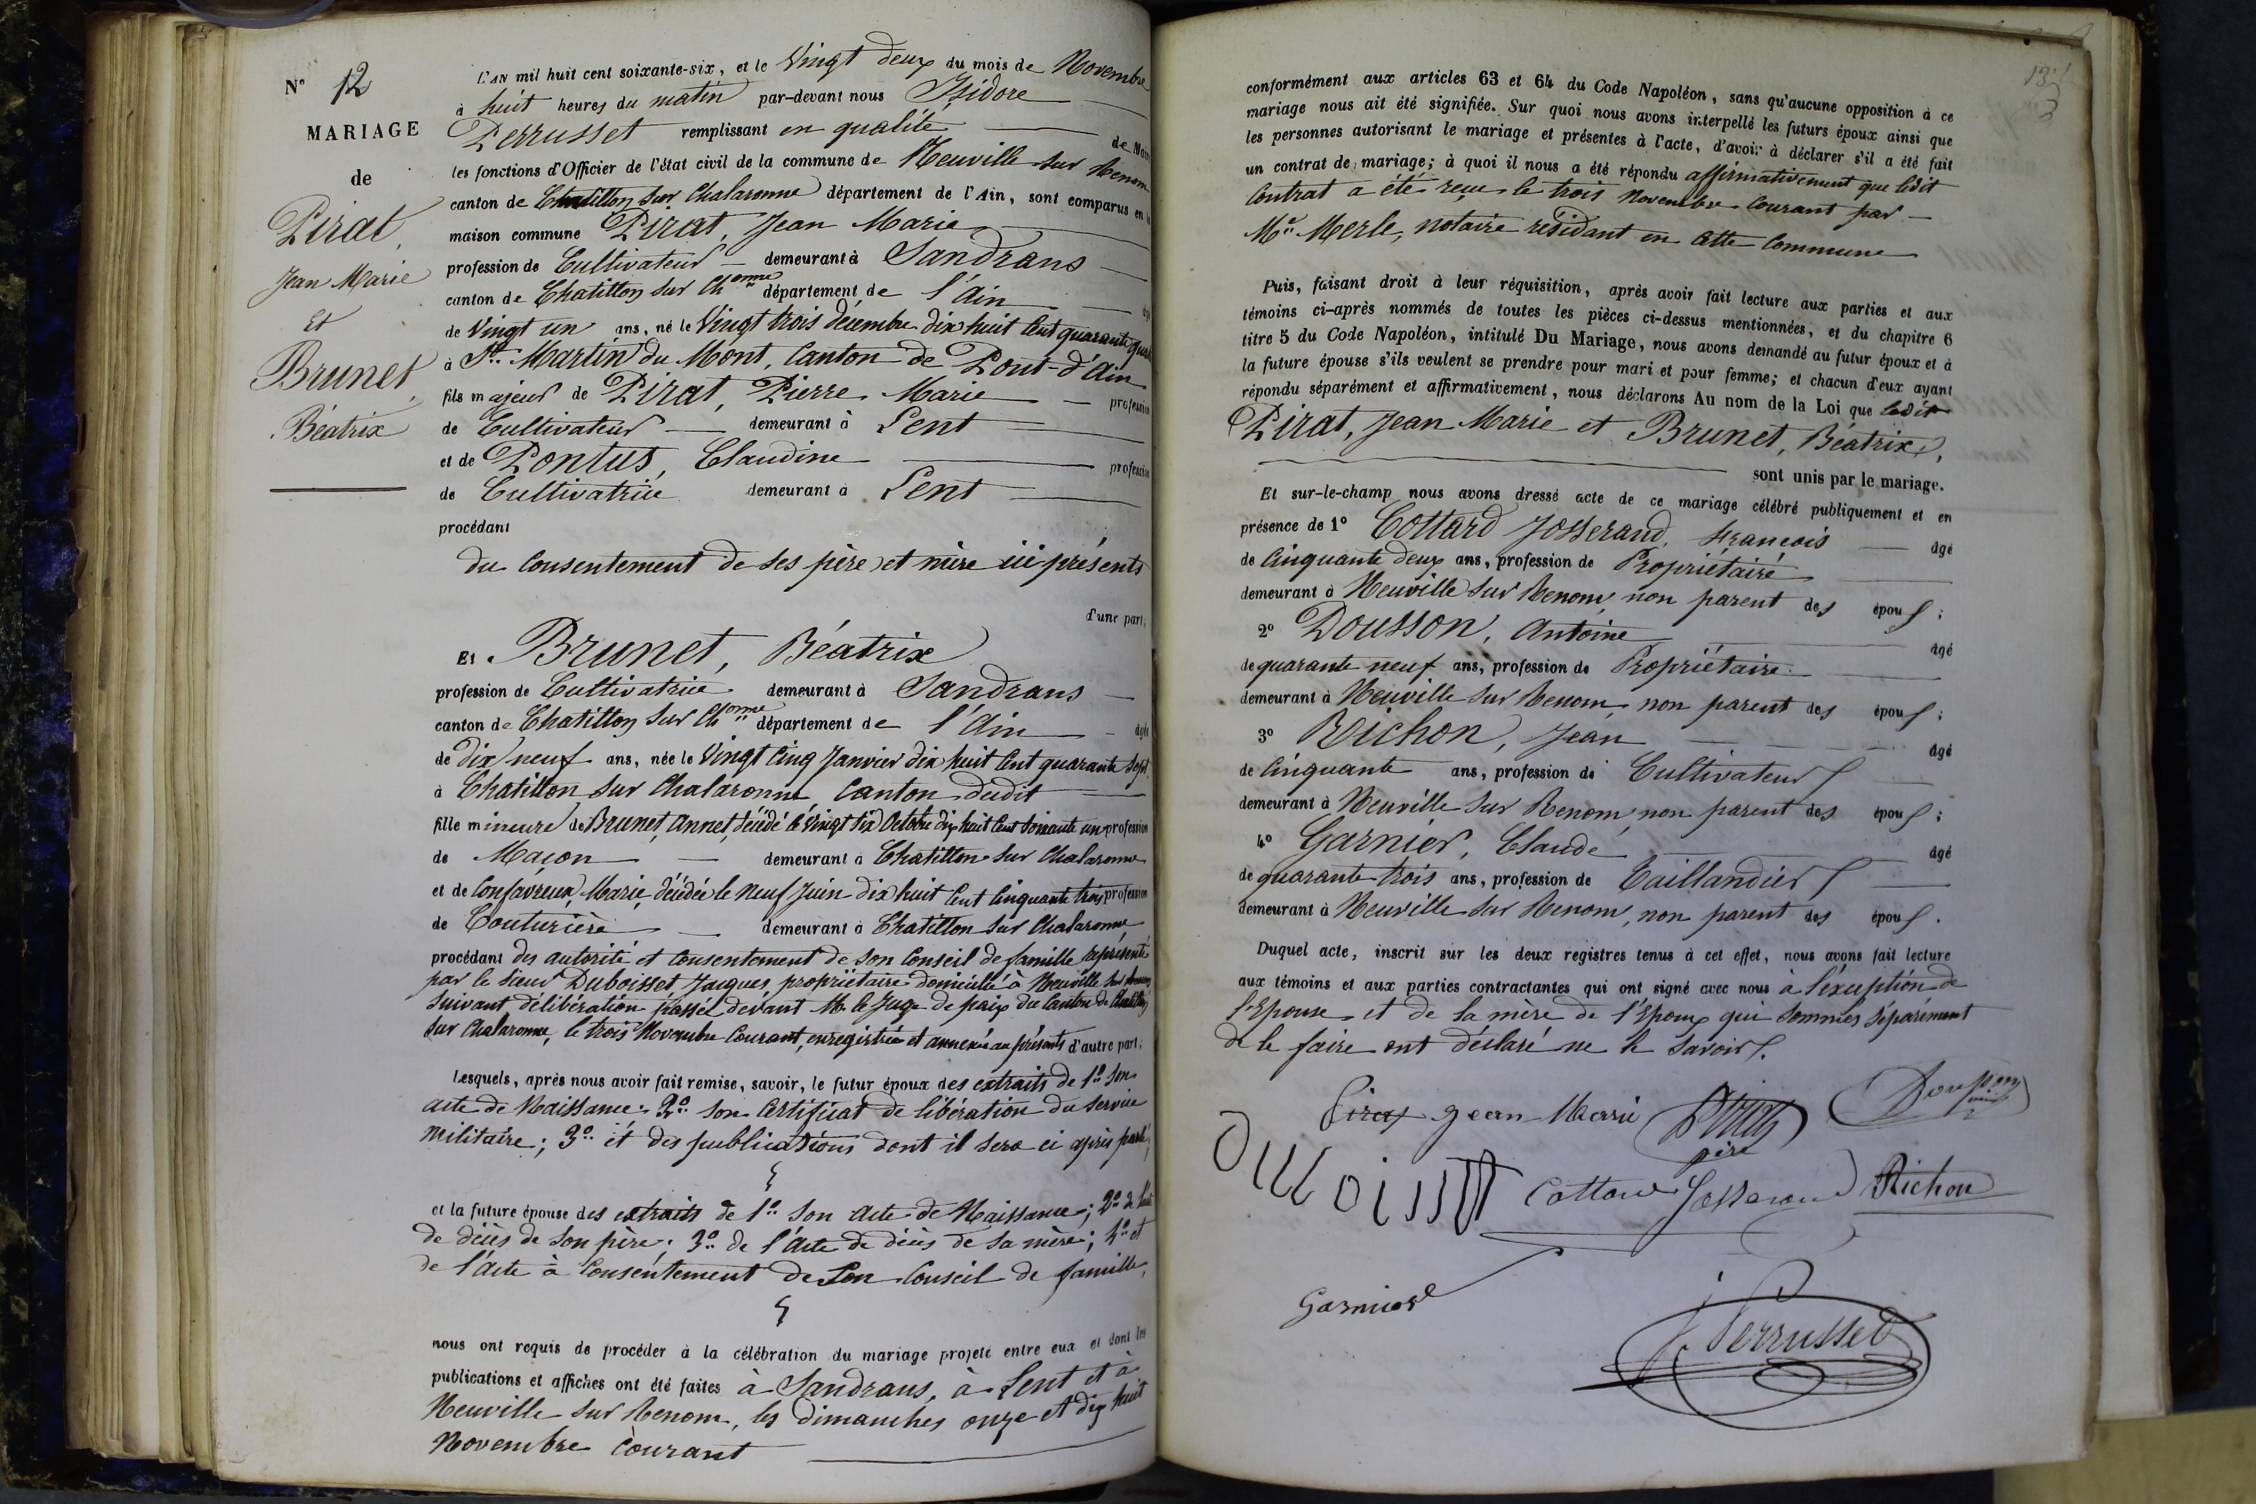 N° 12
MARIAGE
de
Pirat,
Jean Marie
Et
Brunet,
Béatrix
L'AN mil huit cent soixante-six, et le Vingt deux du mois de Novembre
à huit heures du matin par-devant nous Isidore
Perrusset remplissant en qualité de
les fonctions d'Officier de l'état civil de la commune de Neuville sur Renom
canton de Chatillon sur Chalaronne département de l'Ain, sont comparus en
maison commune Pirat, Jean Marie
profession de Cultivateur demeurant à Sandrans
canton de Chatillon sur Chonne département de l'Ain
de Vingt un ans, né le Vingt trois décembre dix huit cent quarante
à St. Martin du Mont, Canton de Pont-d'Ain
fils majeur de Pirat, Pierre Marie profession
de Cultivateur demeurant à Lent
et de Pontus, Claudine profession
de Cultivatrice demeurant à Lent
procédant
du consentement de ses père et mère ici présents
d'une part,
Et Brunet, Béatrix
profession de Cultivatrice demeurant à Sandrans
canton de Chatillon sur Chonne département de l'Ain âgée
de dix neuf ans, née le Vingt cinq Janvier dix huit cent quarante sept
à Chatillon sur Chalaronne Canton dudit
fille mineure de Brunet, Annet, décédé le vingt six Octobre dix huit cent soixante un profession
de Maçon demeurant à Chatillon sur Chalaronne
et de Confavreux, Marie, décédée le neuf Juin dix huit cent cinquante trois profession
de Couturière demeurant à Chatillon sur Chalaronne
procédant des autorité et consentement de son Conseil de famille représenté
par le sieur Duboisset Jacques, propriétaire domicilié à Neuville sur Renom,
suivant délibération passée devant M. le Juge de paix du Canton de Chatillon
sur Chalaronne, le trois Novembre courant, enregistrée et annexée au présents d'autre part;
Lesquels, après nous avoir fait remise, savoir, le futur époux des extraits de 1° son
acte de Naissance; 2° son Certificat de libération du service
militaire; 3° et des publications dont il sera ci après parlé;
et la future épouse des extraits de 1° son acte de Naissance; 2° de l'acte
de décès de son père; 3° de l'Acte de décès de sa mère; 4° et
de l'Acte à Consentement de son Conseil de famille,
nous ont requis de procéder à la célébration du mariage projeté entre eux et dont les
publications et affiches ont été faites à Sandrans, à Lent et à
Neuville sur Renom, les dimanches onze et dix huit
Novembre courant
conformément aux articles 63 et 64 du Code Napoléon, sans qu'aucune opposition à ce
mariage nous ait été signifiée. Sur quoi nous avons interpellé les futurs époux ainsi que
les personnes autorisant le mariage et présentes à l'acte, d'avoir à déclarer s'il a été fait
un contrat de mariage; à quoi il nous a été répondu affirmativement que ledit
Contrat a été reçu le trois Novembre Courant par
Me Merle, notaire résidant en cette Commune
Puis, faisant droit à leur réquisition, après avoir fait lecture aux parties et aux
témoins ci-après nommés de toutes les pièces ci-dessus mentionnées, et du chapitre 6
titre 5 du Code Napoléon, intitulé Du Mariage, nous avons demandé au futur époux et à
la future épouse s'ils veulent se prendre pour mari et pour femme; et chacun d'eux ayant
répondu séparément et affirmativement, nous déclarons Au nom de la Loi que ledit
Pirat, Jean Marie et Brunet, Béatrix,
sont unis par le mariage.
Et sur-le-champ nous avons dressé acte de ce mariage célébré publiquement et en
présence de 1° Cottard Josserand, François âgé
de cinquante deux ans, profession de Propriétaire
demeurant à Neuville sur Renom, non parent des époux;
2° Dousson, Antoine âgé
de quarante neuf ans, profession de Propriétaire
demeurant à Neuville sur Renom, non parent des époux;
3° Richon, Jean âgé
de cinquante ans, profession de Cultivateur
demeurant à Neuville sur Renom, non parent des époux;
4° Garnier, Claude âgé
de quarante trois ans, profession de Taillandier
demeurant à Neuville sur Renom, non parent des époux.
Duquel acte, inscrit sur les deux registres tenus à cet effet, nous avons fait lecture
aux témoins et aux parties contractantes qui ont signé avec nous à l'exception de
l'Epouse et de la mère de l'Epoux qui sommés séparément
de le faire ont déclaré ne le savoir.
Pirat Jean Marie Pirat père Dousson
Duboisset Cottard Josserand Richon
Garnier
J. Perrusset